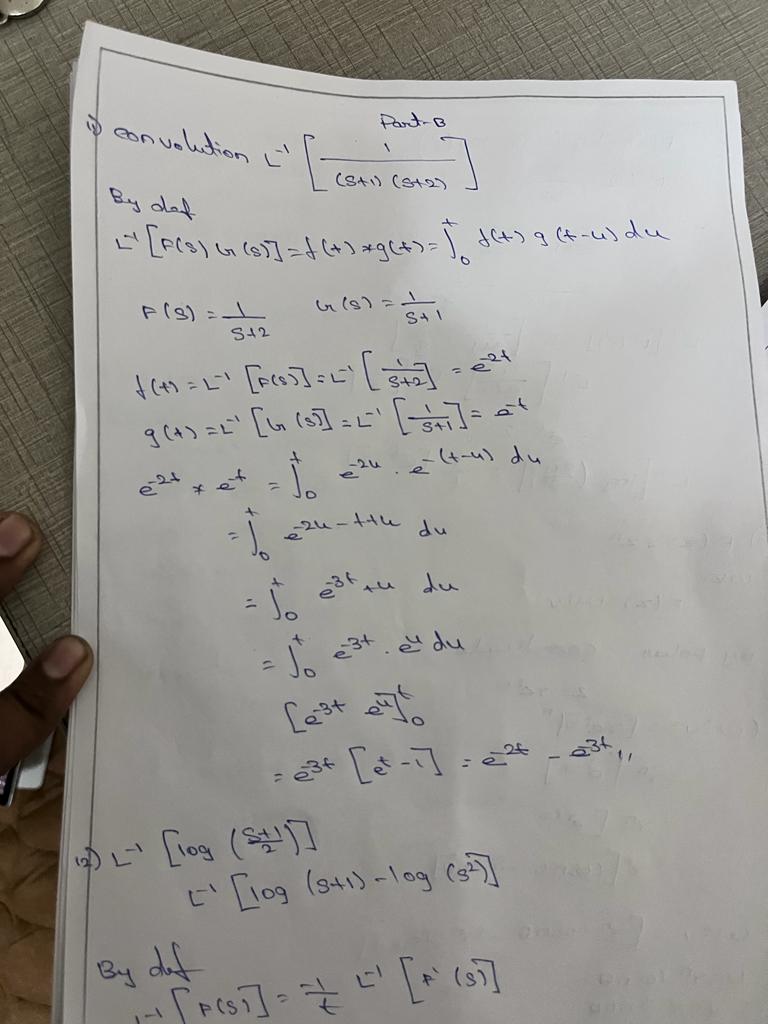 Part-B
11) convolution L⁻¹ [ 1 / (s+1) (s+2) ]
By def
L⁻¹ [F(s) G(s)] = f(t) * g(t) = ∫₀ᵗ f(t) g(t-u) du
F(s) = 1/s+2 G(s) = 1/s+1
f(t) = L⁻¹ [F(s)] = L⁻¹ [1/s+2] = e^-2t
g(t) = L⁻¹ [G(s)] = L⁻¹ [1/s+1] = e^-t
e^-2t * e^-t = ∫₀ᵗ e^-2u . e^-(t-u) du
= ∫₀ᵗ e^-2u-t+u du
= ∫₀ᵗ e^-3t +u du
= ∫₀ᵗ e^-3t . e^u du
[e^-3t e^u]₀ᵗ
= e^-3t [e^t - 1] = e^-2t - e^-3t //
12) L⁻¹ [log (s+1/2)]
L⁻¹ [log (s+1) - log (s²)]
By def
L⁻¹ [F(s)] = -1/t L⁻¹ [F'(s)]